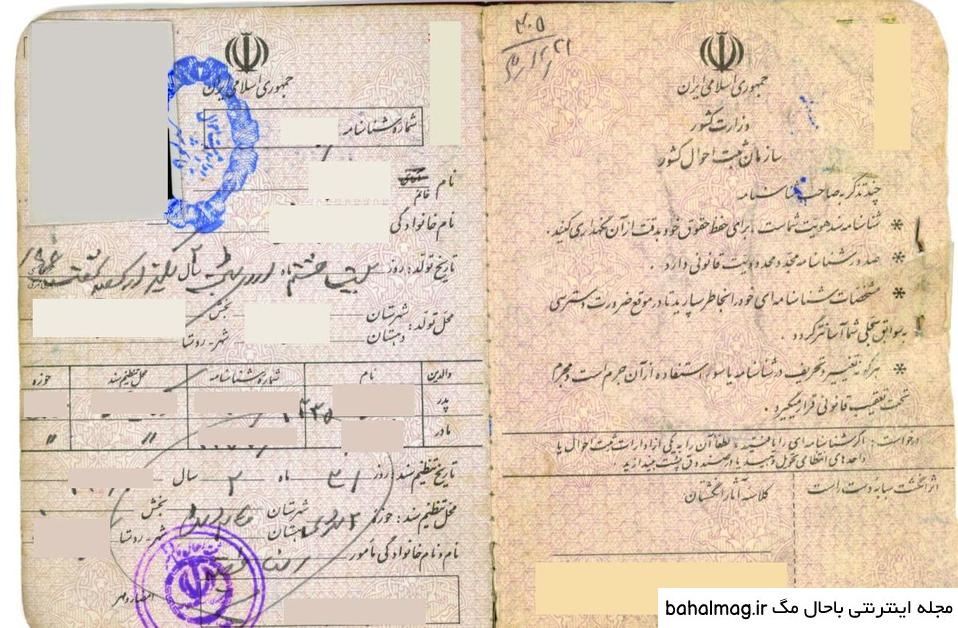 ۲۰۵
جمهوری اسلامی ایران
وزارت کشور
سازمان ثبت احوال کشور
چند تذکر به صاحب شناسنامه
* شناسنامه سند هویت شماست، برای حفظ حقوق خود به دقت از آن نگهداری کنید.
* صدور شناسنامه مجدد محدودیت قانونی دارد.
* مشخصات شناسنامه‌ای خود را بخاطر بسپارید تا در موقع ضرورت دسترسی
به سوابق سجلی شما آسانتر گردد.
* هرگونه تغییر و تحریف در شناسنامه یا سوء استفاده از آن جرم است و مجرم
تحت تعقیب قانونی قرار میگیرد.
درخواست: اگر شناسنامه‌ای را یافتید لطفاً آن را به یکی از ادارات ثبت احوال یا
واحدهای انتظامی تحویل دهید یا در صندوق پست بیندازید.
اثر انگشت سبابه دست راست
کلاسه آثار انگشتان
جمهوری اسلامی ایران
شماره شناسنامه
نام
خانم
نام خانوادگی
تاریخ تولد: روز بیست هشتم ماه سال یکهزار
محل تولد: شهرستان بخش
دهستان شهر-روستا
والدین نام شماره شناسنامه محل تنظیم سند حوزه
پدر
مادر " "
تاریخ تنظیم سند: روز ۳۱ ماه ۲ سال
محل تنظیم سند: حوزه ۲ شهرستان بخش
دهستان شهر-روستا
نام و نام خانوادگی مأمور
امضاء و مهر
مجله اینترنتی باحال مگ bahalmag.ir